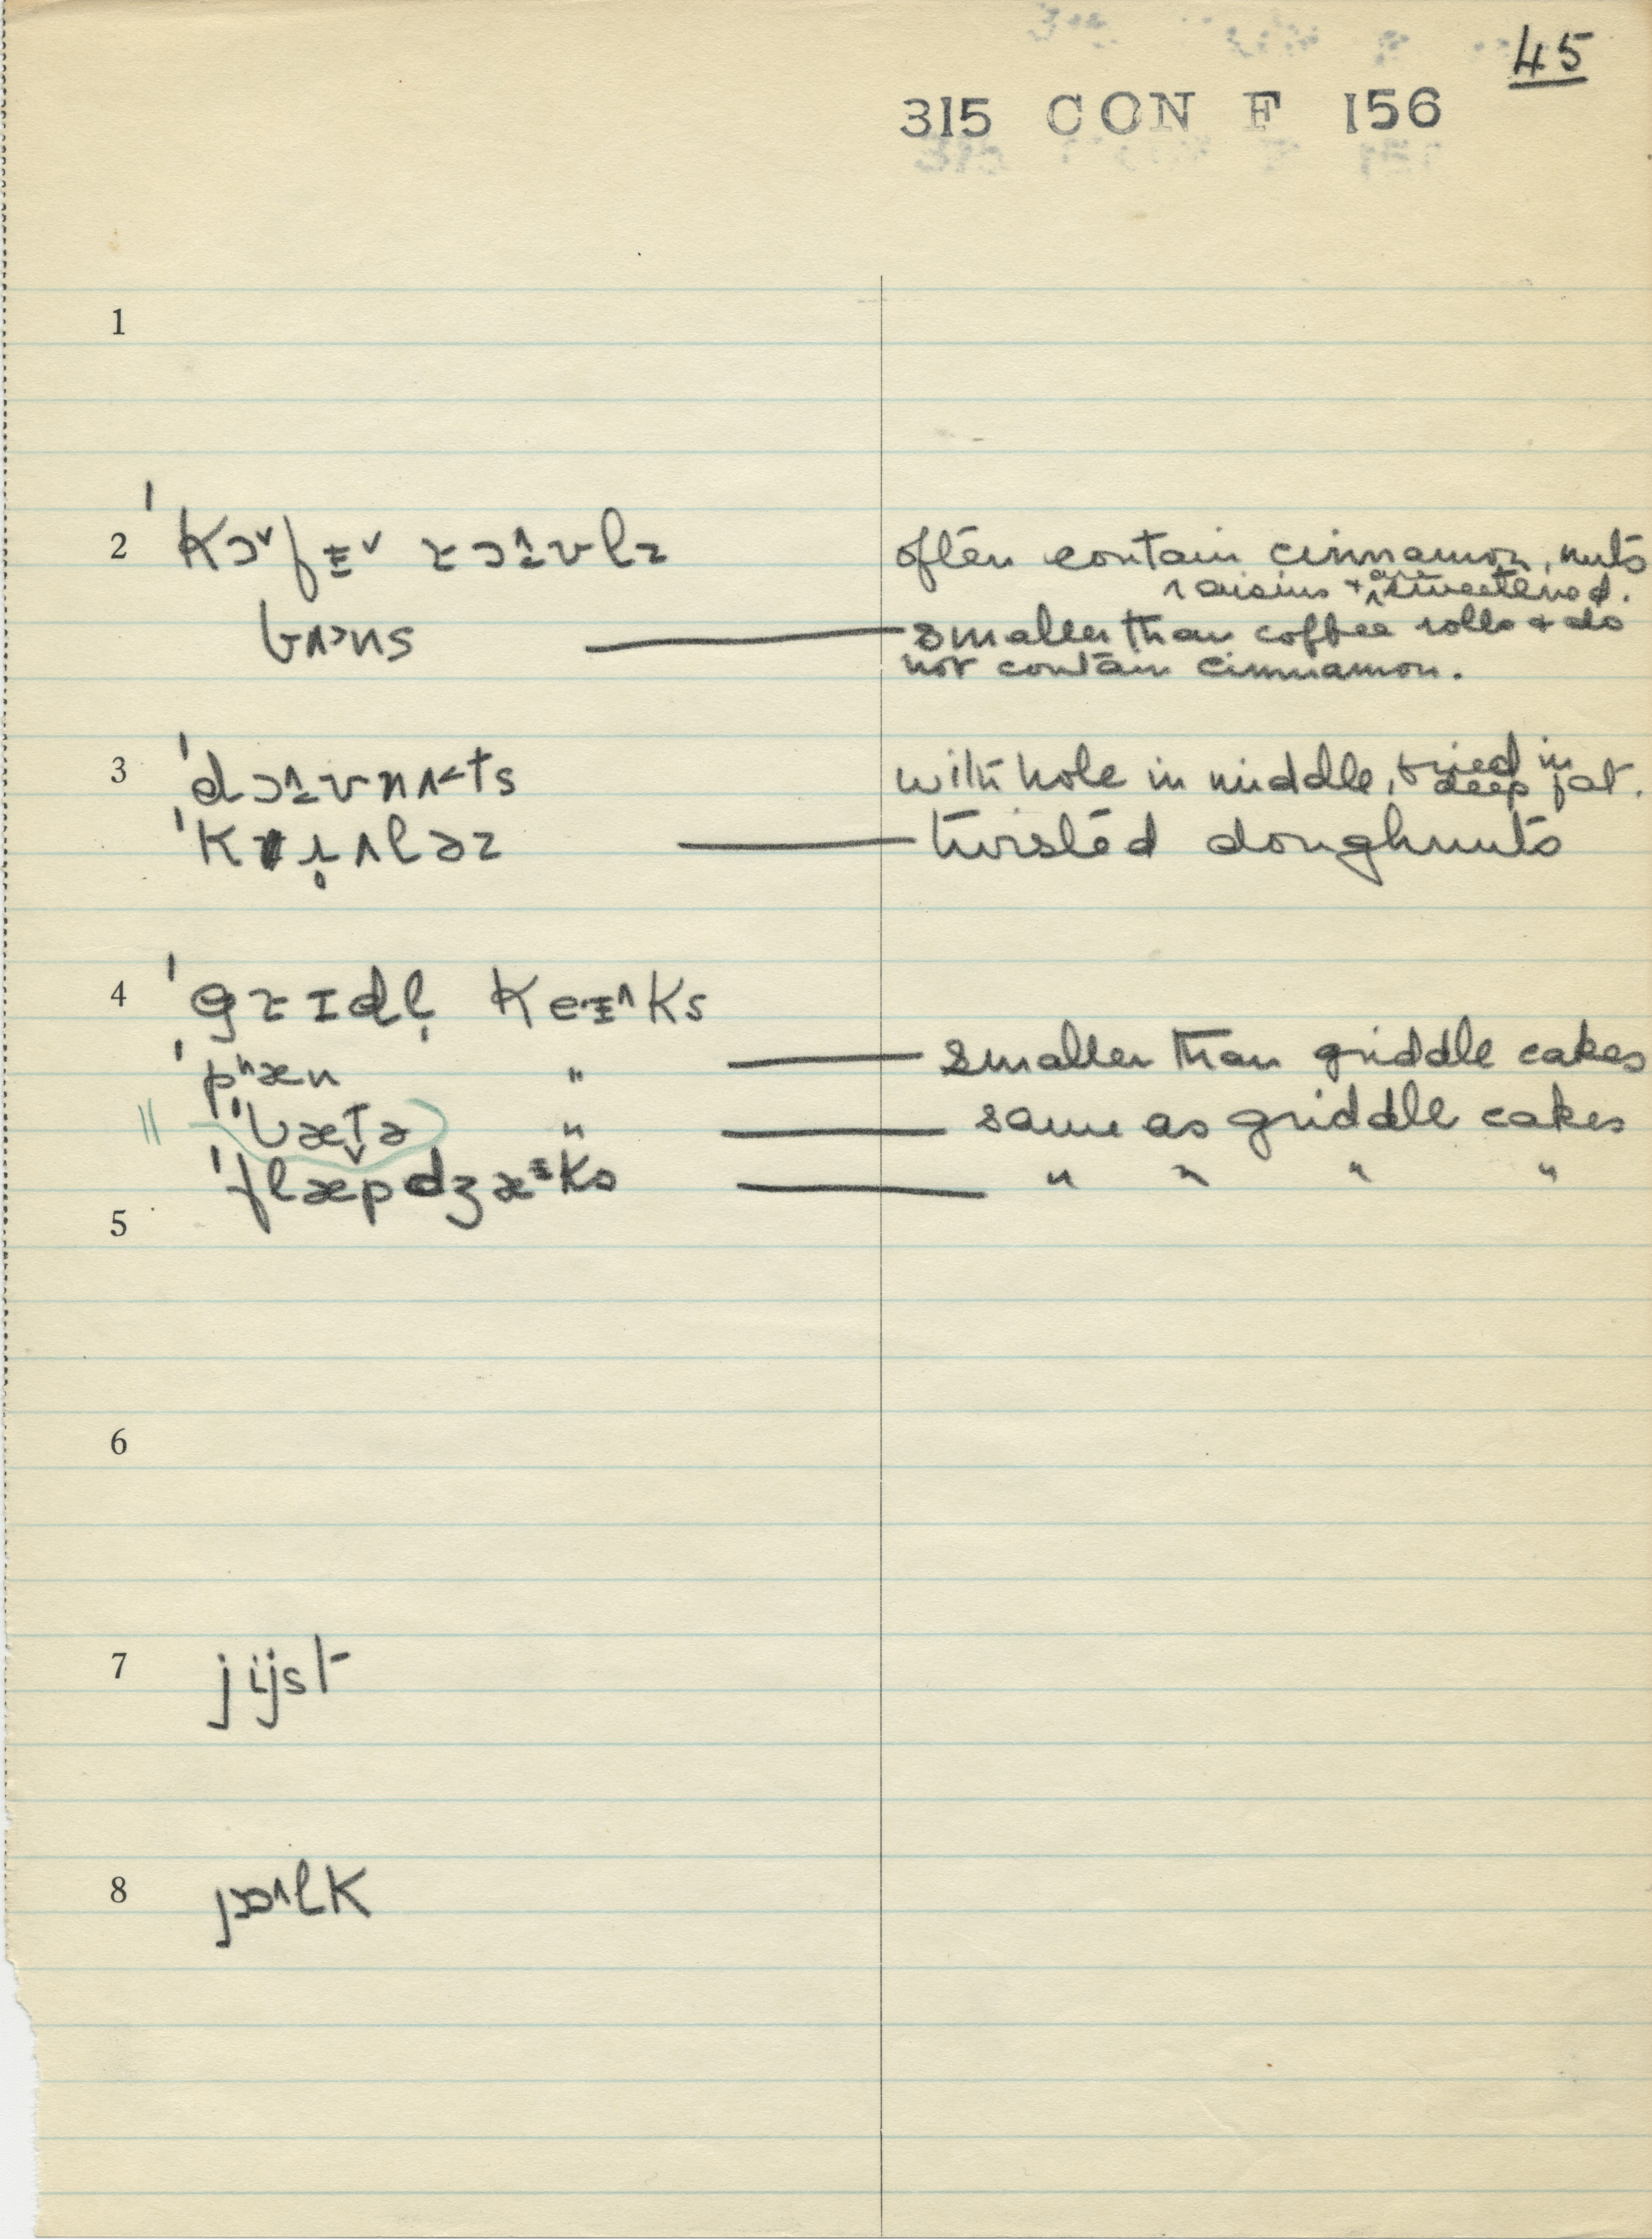 45
315 CON F 156
1
2 ˈkɔ˅fɪ˅ rɔʊlz often contain cinnamon, nuts
raisins + are sweetened.
bʌ˃ns smaller than coffee rolls + do
not contain cinnamon.
3 ˈdɔʊnʌ˂ts with hole in middle, fried in
deep fat.
ˈkɹ̥ʌləz twisted doughnuts
4 ˈgrɪdl̩ keɪ˄ks
ˈpʰæn " smaller than griddle cakes
ˈbæt̬ə " same as griddle cakes
ˈflæpdʒæᵻks " " " "
5
6
7 jijst
8 jɔ˄lk